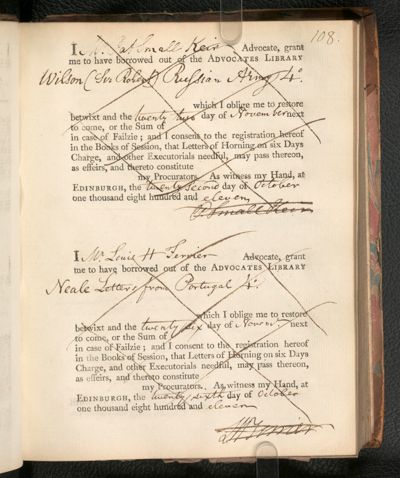 108.
I Mr. Pat. Small Keir Advocate, grant
me to have borrowed out of the ADVOCATES LIBRARY
Wilson (Sir Robert) Russian Army 4o.
which I oblige me to restore
betwixt and the twenty two day of November next
to come, or the Sum of
in case of Failzie; and I consent to the registration hereof
in the Books of Session, that Letters of Horning on six Days
Charge, and other Executorials needful, may pass thereon,
as effeirs, and thereto constitute
my Procurators. As witness my Hand, at
EDINBURGH, the twenty second day of October
one thousand eight hundred and eleven
P Small Keir
I Mr. Louis H Ferrier Advocate, grant
me to have borrowed out of the ADVOCATES LIBRARY
Neale Letters from Portugal 4o.
which I oblige me to restore
betwixt and the twenty six day of Novemr. next
to come, or the Sum of
in case of Failzie; and I consent to the registration hereof
in the Books of Session, that Letters of Horning on six Days
Charge, and other Executorials needful, may pass thereon,
as effeirs, and thereto constitute
my Procurators. As witness my Hand, at
EDINBURGH, the twenty sixth day of October
one thousand eight hundred and eleven
LH Ferrier